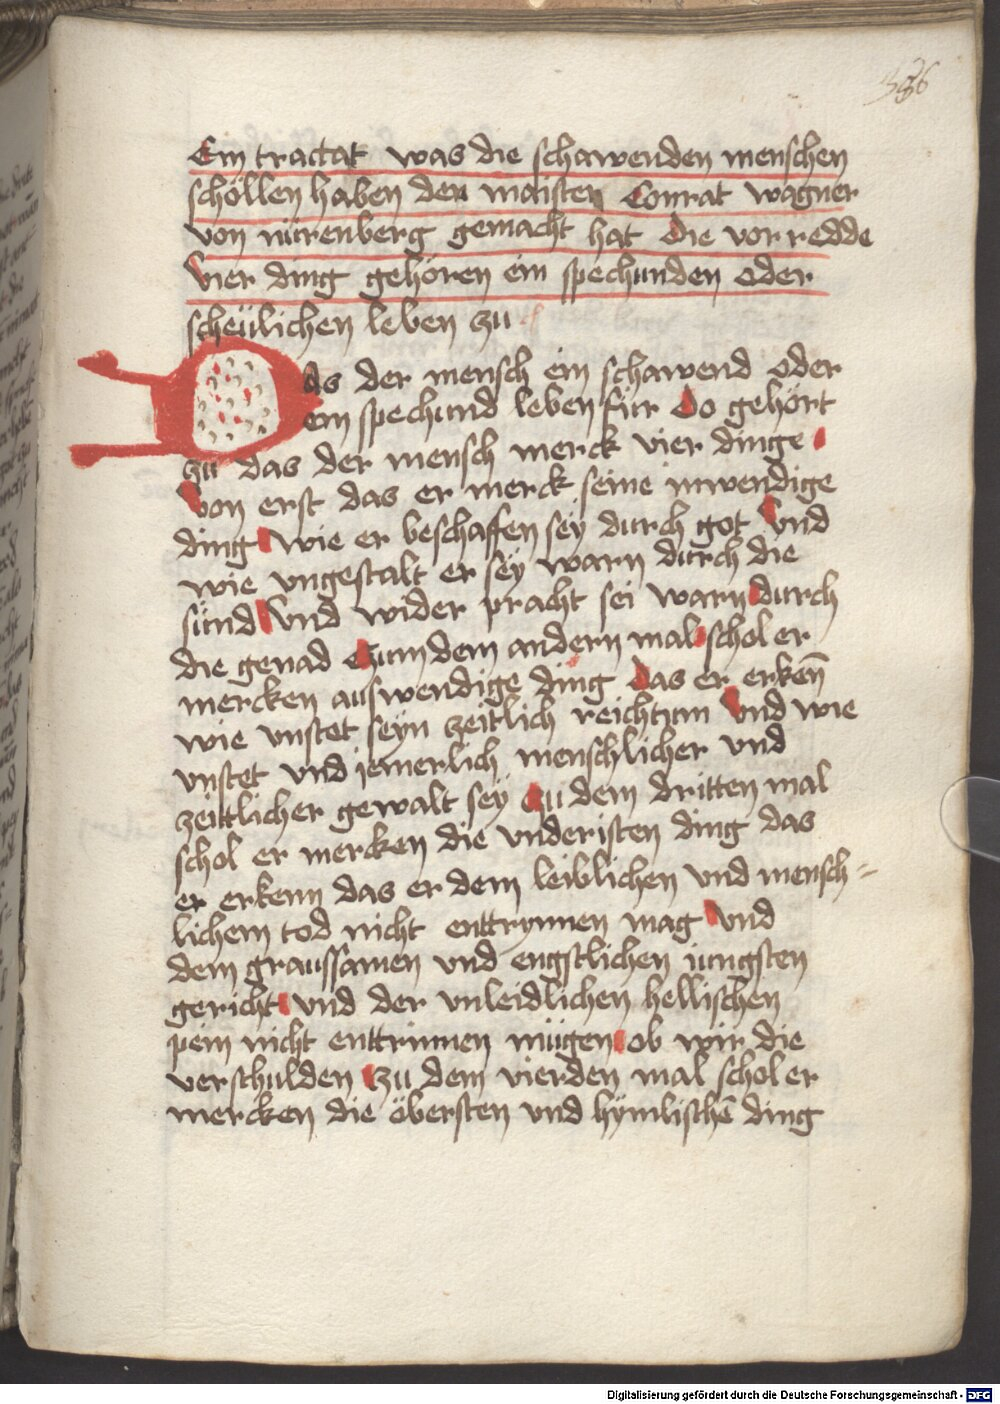 336
Ein tractat was die schawenden menschen
schöllen haben den maisten Conrat wagner
von nürenberg gemacht hat die vor redde
Vier ding gehören ein spechunden oder
scheülichen leben zu
Das der mensch ein schawend oder
ein spechund leben für Do gehört
zu das der mensch merck vier dinge
Von erst das er merck seine inwendige
ding wie er beschaffen sey durch got Vnd
wie vngestalt er sey warn durch die
sünd Vnd wider pracht sei warn durch
die genad Czum dem andern mal schol er
mercken auswendige ding Das er erkeñ
wie vnstet seyn zeitlich reichtum Vnd wie
vnstet vnd jemerlich menschlicher vnd
zeittlicher gewalt sey Zu dem dritten mal
schol er mercken die vnderisten ding das
er erkenn das er dem leiblichen vnd mensch-
lichem tod nicht enttrynnen mag Vnd
dem graussamen vnd engstlichen jungsten
gericht vnd der vnleidlichen hellischen
pein nicht enttrinnen mügen ob wir die
verschulden Zu dem vierden mal schol er
mercken die öbersten vnd hymlischē ding
Digitalisierung gefördert durch die Deutsche Forschungsgemeinschaft - DFG